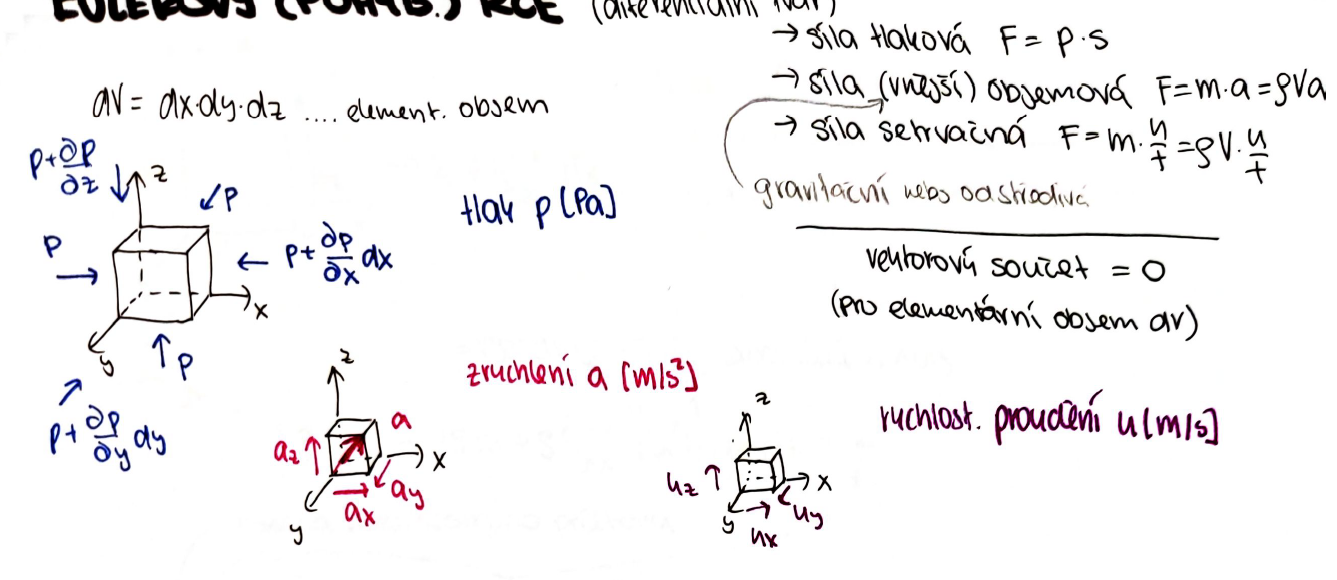 EULEROVY (POHYB.) RCE (diferenciální tvar)
→ síla tlaková F = p·s
→ síla (vnější) objemová F=m·a=ρVa
→ síla setrvačná F=m·u/t=ρV·u/t
gravitační nebo odstředivá
vektorový součet = 0
(pro elementární objem dV)
dV = dx·dy·dz .... element. objem
p+∂p/∂z
z
p
tlak p [Pa]
p
p+∂p/∂x dx
x
y
p
p+∂p/∂y dy
zrychlení a [m/s²]
z
a
az
x
ay
ax
y
rychlost. proudění u [m/s]
z
uz
x
uy
y
ux